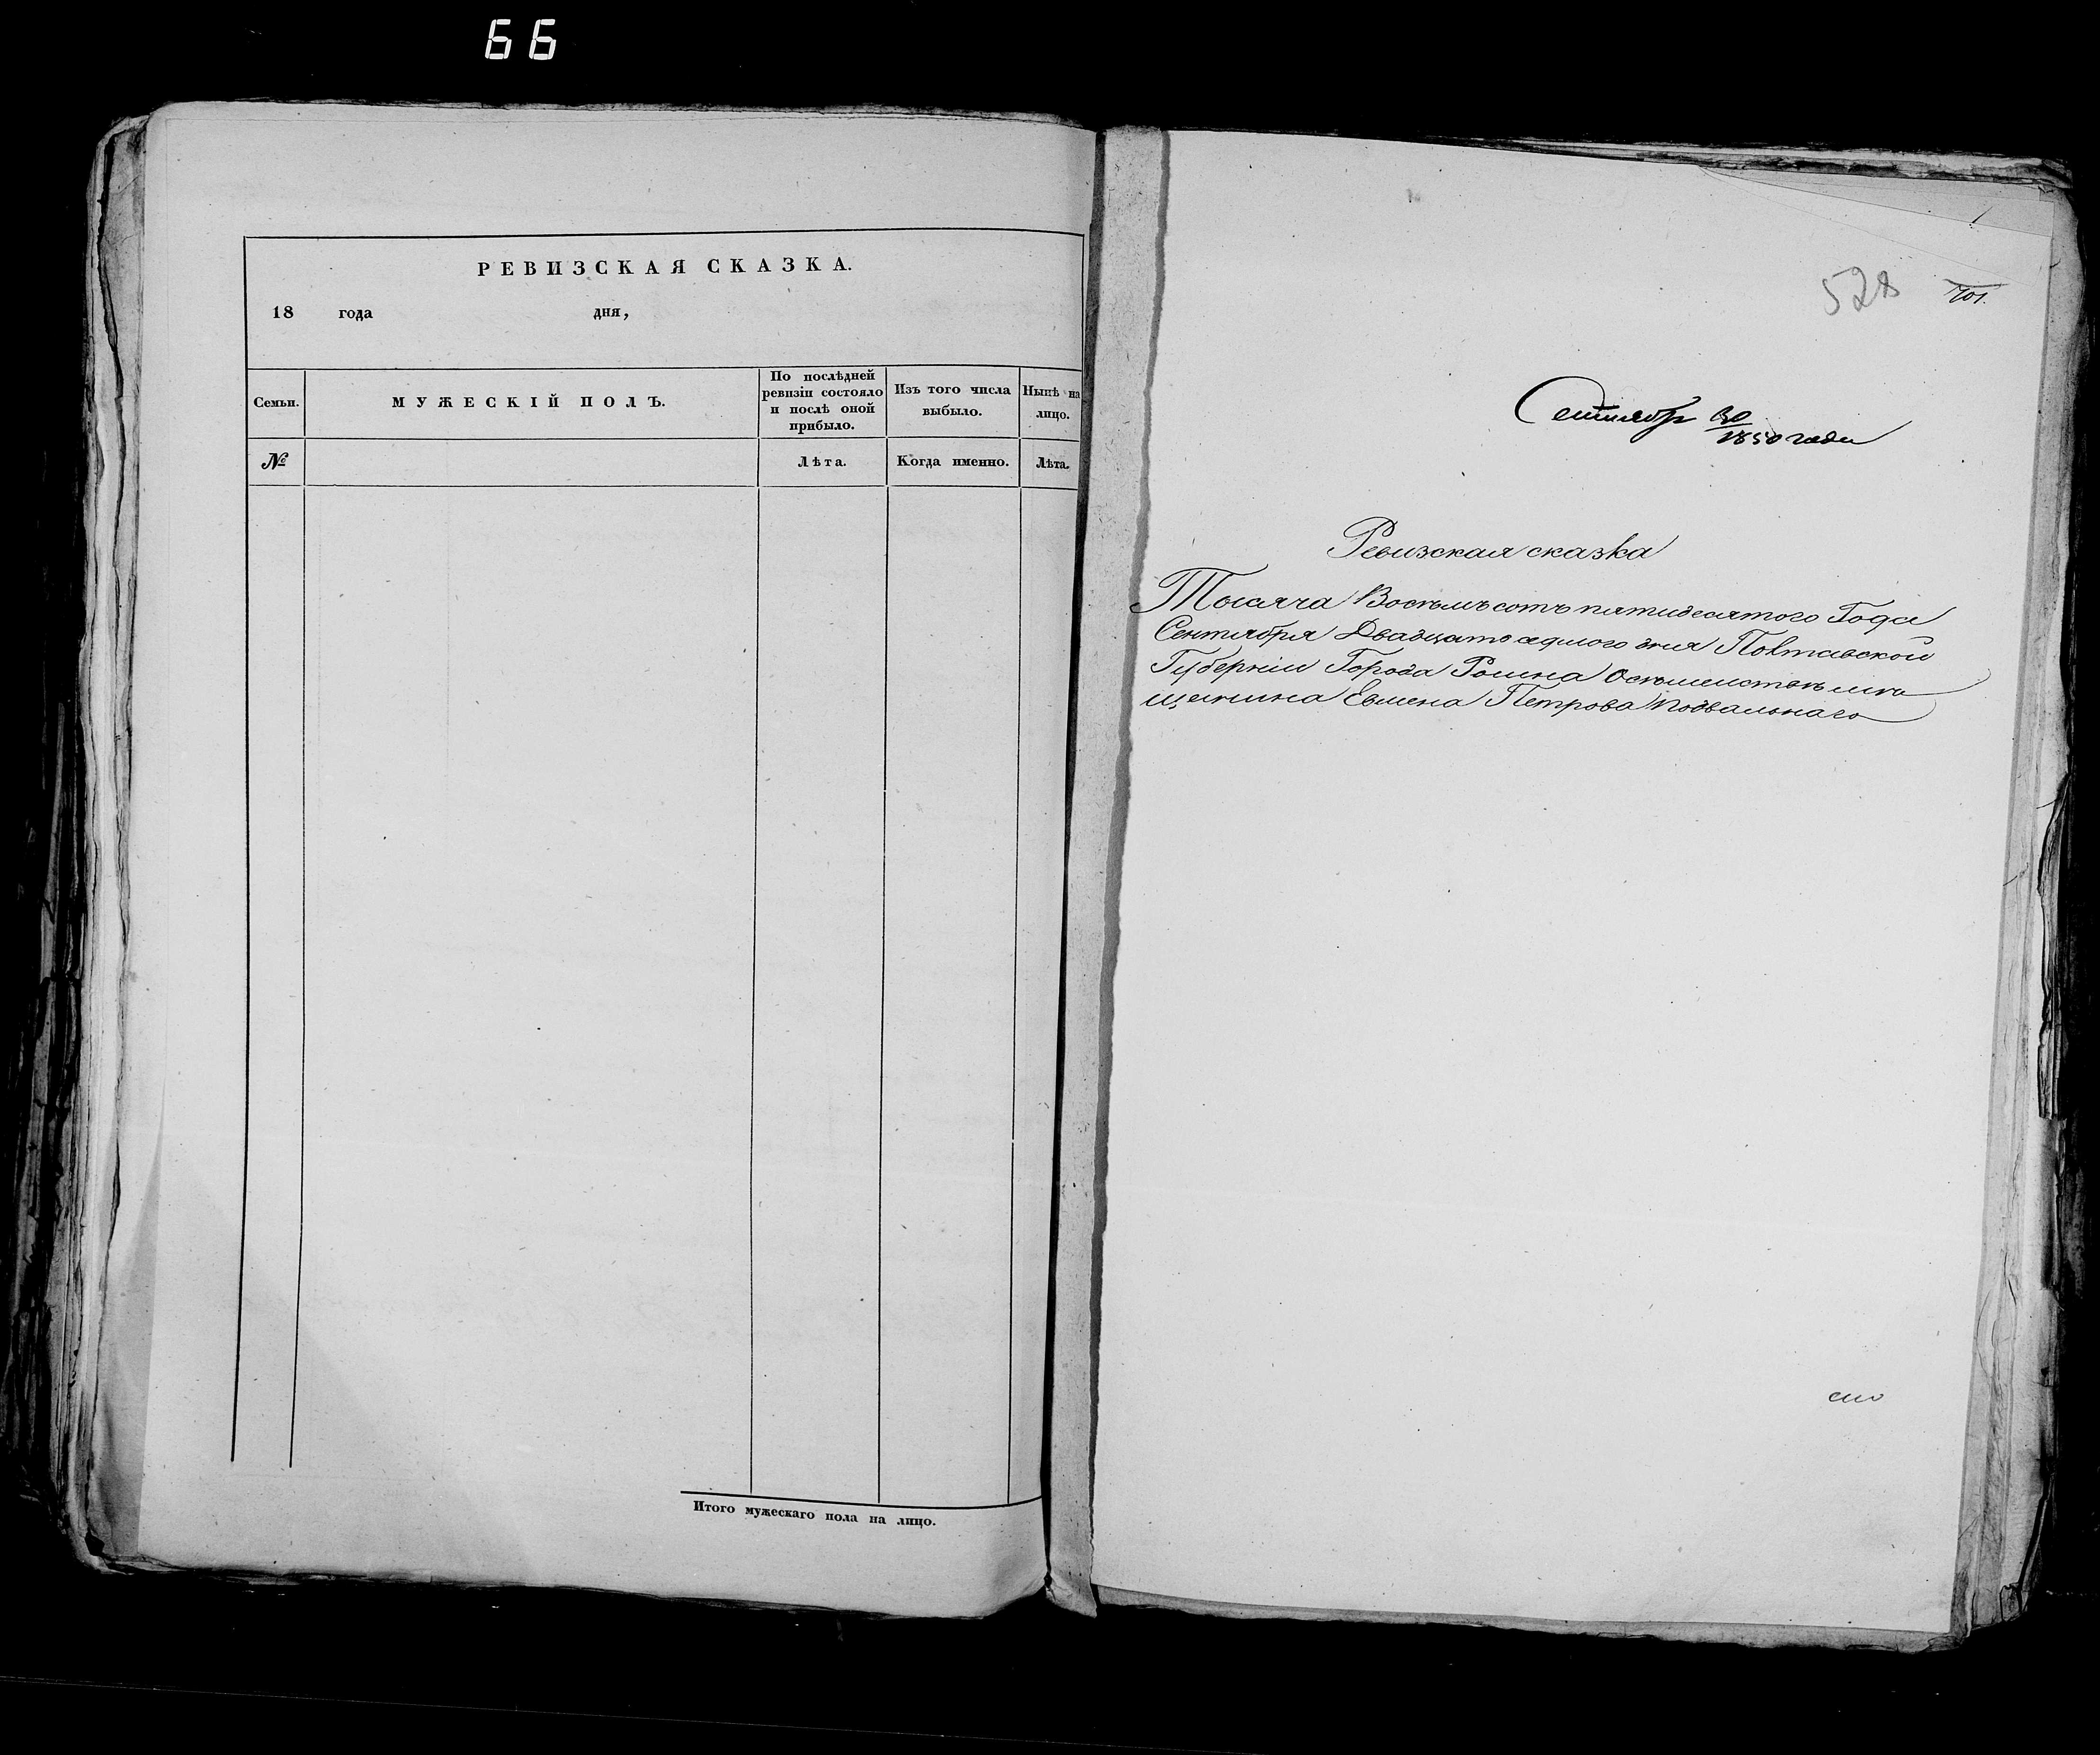 66
РЕВИЗСКАЯ СКАЗКА.
18 года дня,
Семьи.
МУЖЕСКІЙ ПОЛЪ.
По послѣдней ревизіи состояло и послѣ оной прибыло.
Изъ того числа выбыло.
Нынѣ на лицо.
№
Лѣта.
Когда именно.
Лѣта.
Итого мужескаго пола на лицо.
1
528
701.
Сентября 30
1850 года
Ревизская сказка
Тысяча Восемьсотъ пятидесятого Года
Сентября Двадцать седмого дня Полтавской
Губерніи Города Ромна мѣ
щанина Евмена Петрова Подвальнаго